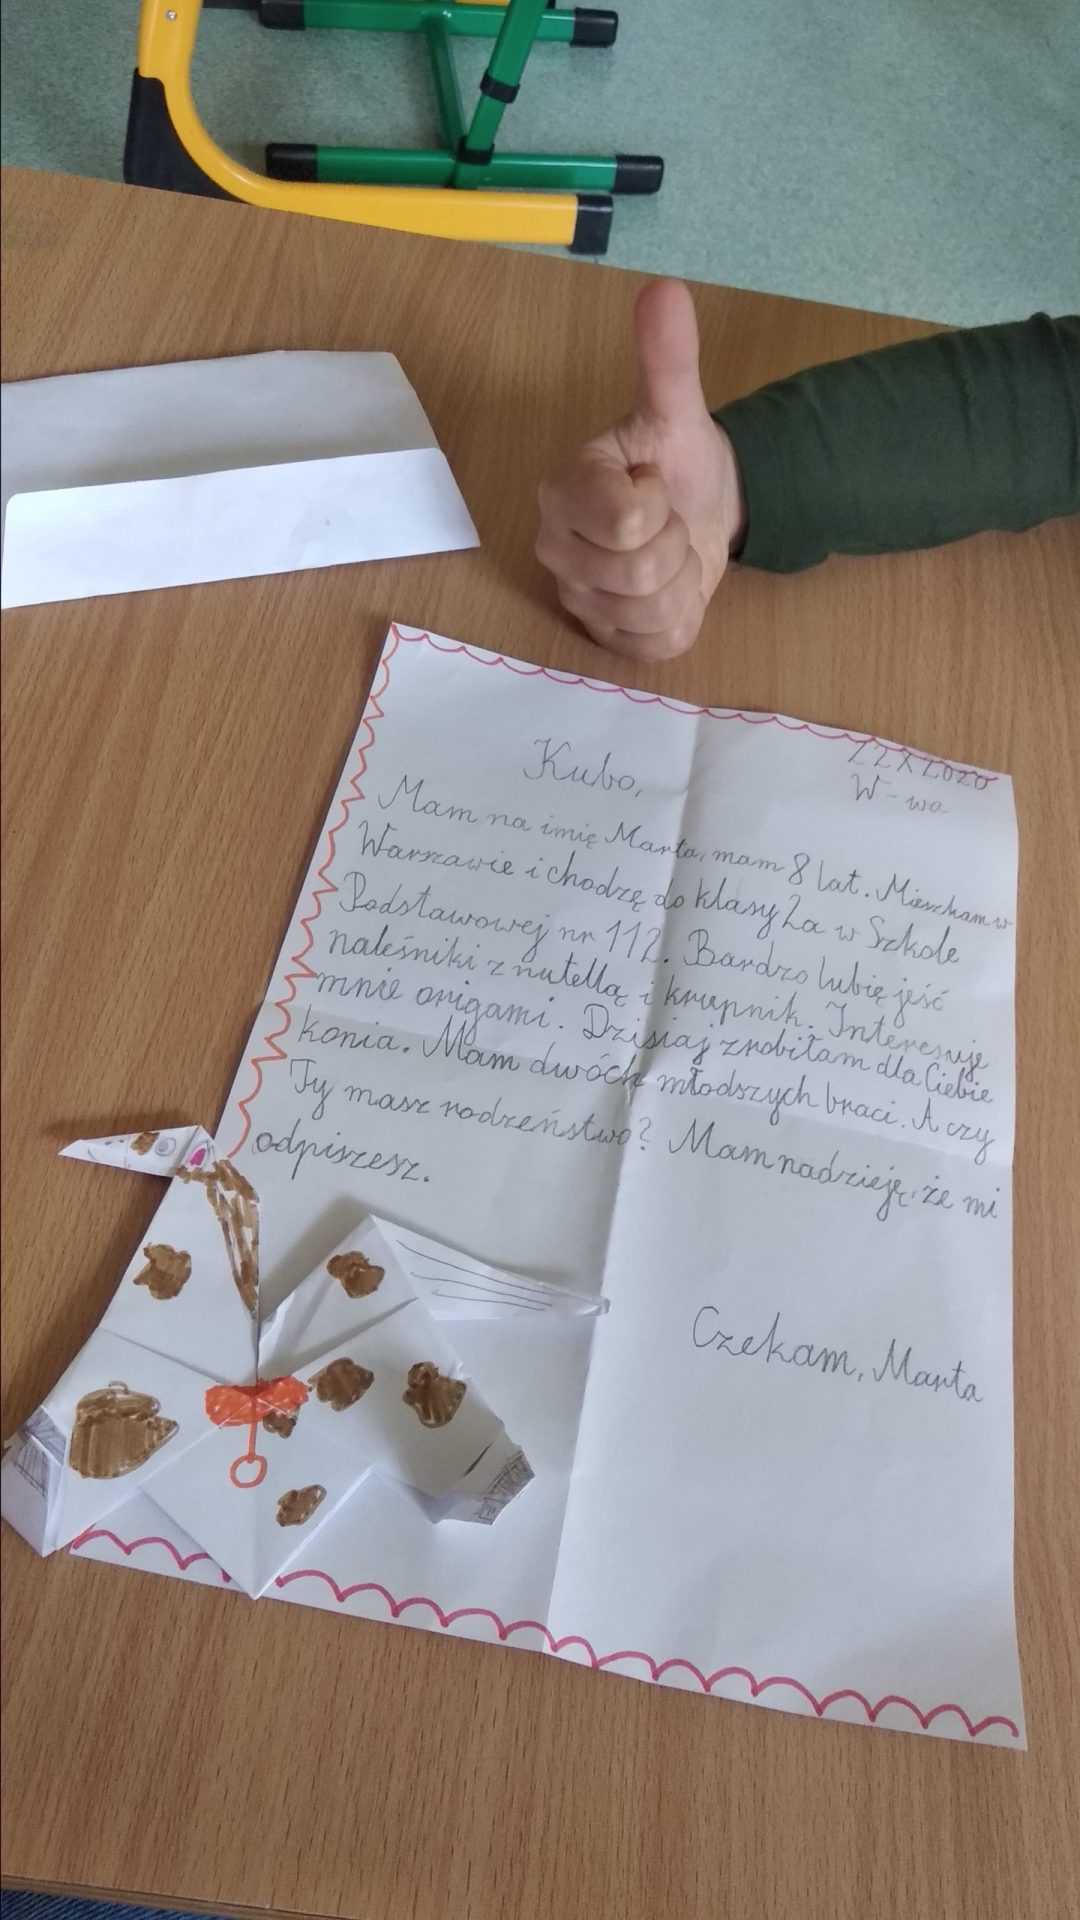 22 X 2020
W-wa
Kubo,
Mam na imię Marta, mam 8 lat. Mieszkam w
Warszawie i chodzę do klasy 2a w Szkole
Podstawowej nr 112. Bardzo lubię jeść
naleśniki z nutellą i krupnik. Interesuje
mnie origami. Dzisiaj zrobiłam dla Ciebie
konia. Mam dwóch młodszych braci. A czy
Ty masz rodzeństwo? Mam nadzieję, że mi
odpiszesz.
Czekam, Marta